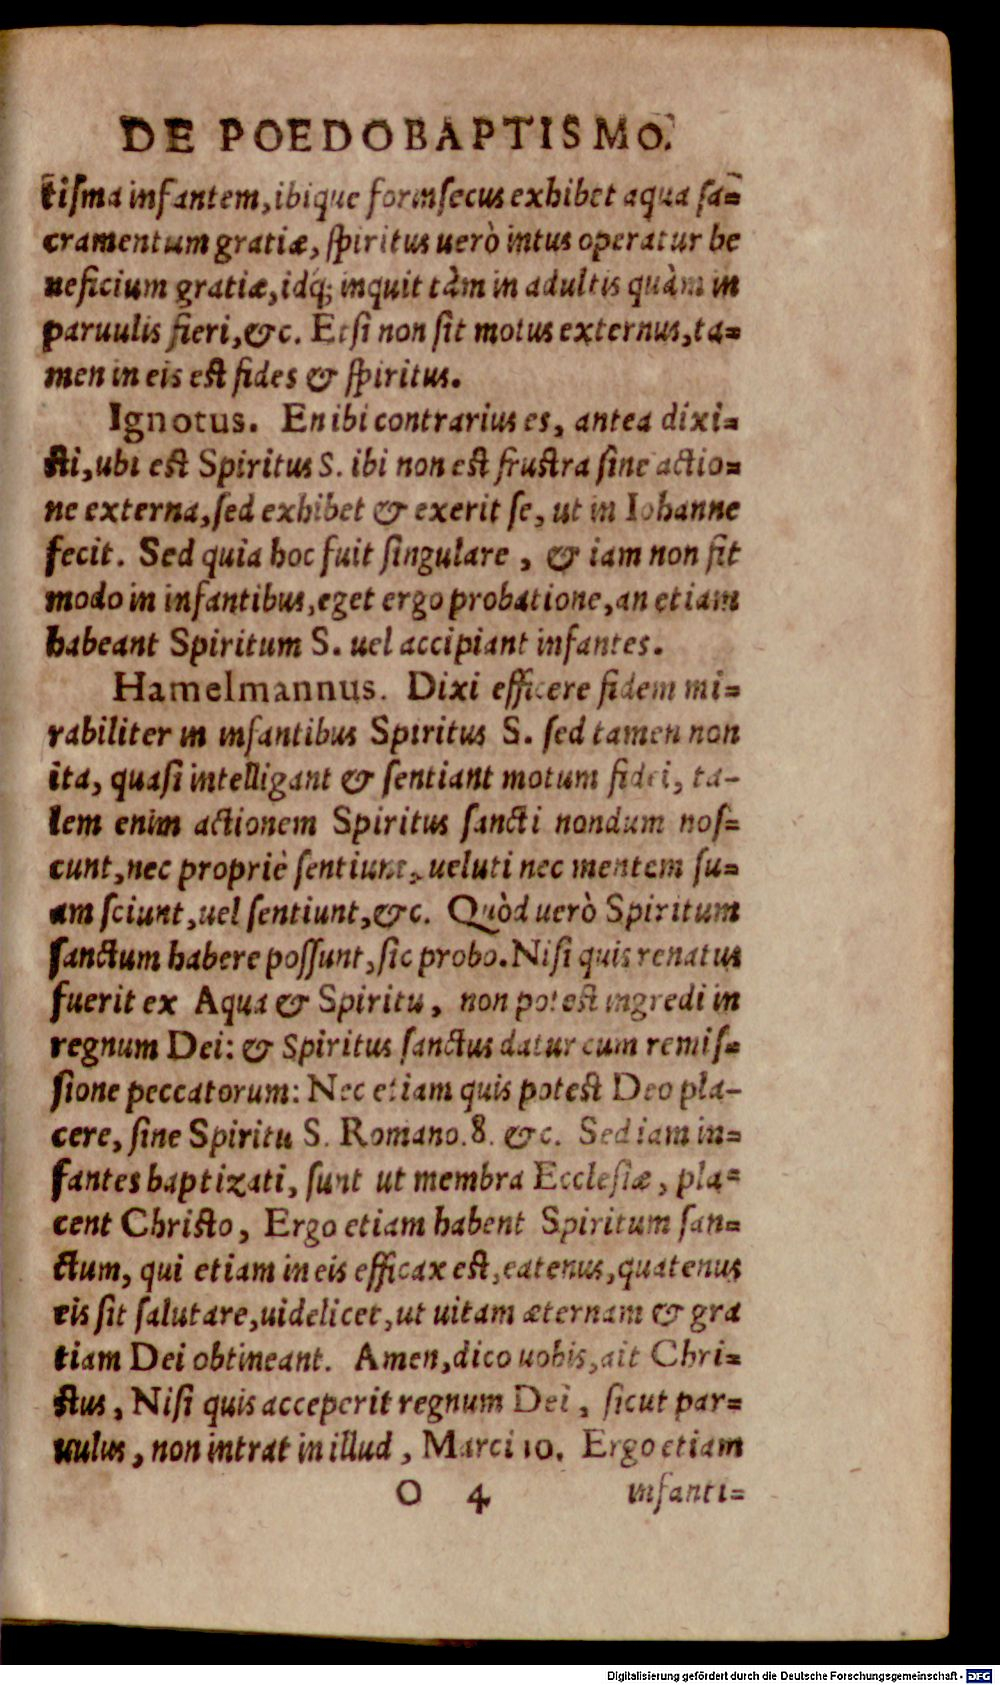 DE POEDOBAPTISMO.
tisma infantem, ibique forinsecus exhibet aqua sa=
cramentum gratiæ, spiritus uerò intus operatur be
neficium gratiæ, idq́; inquit tàm in adultis quàm in
paruulis fieri, &c. Etsi non sit motus externus, ta=
men in eis est fides & spiritus.
Ignotus. En ibi contrarius es, antea dixi=
sti, ubi est Spiritus S. ibi non est frustra sine actio=
ne externa, sed exhibet & exerit se, ut in Iohanne
fecit. Sed quia hoc fuit singulare, & iam non fit
modo in infantibus, eget ergo probatione, an etiam
habeant Spiritum S. uel accipiant infantes.
Hamelmannus. Dixi efficere fidem mi=
rabiliter in infantibus Spiritus S. sed tamen non
ita, quasi intelligant & sentiant motum fidei, ta-
lem enim actionem Spiritus sancti nondum nos=
cunt, nec propriè sentiunt, ueluti nec mentem su=
am sciunt, uel sentiunt, &c. Quòd uerò Spiritum
sanctum habere possunt, sic probo. Nisi quis renatus
fuerit ex Aqua & Spiritu, non potest ingredi in
regnum Dei: & Spiritus sanctus datur cum remis=
sione peccatorum: Nec etiam quis potest Deo pla-
cere, sine Spiritu S. Romano. 8. &c. Sed iam in=
fantes baptizati, sunt ut membra Ecclesiæ, pla=
cent Christo, Ergo etiam habent Spiritum san=
ctum, qui etiam in eis efficax est, eatenus, quatenus
eis sit salutare, uidelicet, ut uitam æternam & gra
tiam Dei obtineant. Amen, dico uobis, ait Chri=
stus, Nisi quis acceperit regnum Dei, sicut par=
uulus, non intrat in illud, Marci 10. Ergo etiam
O 4 infanti=
Digitalisierung gefördert durch die Deutsche Forschungsgemeinschaft - DFG